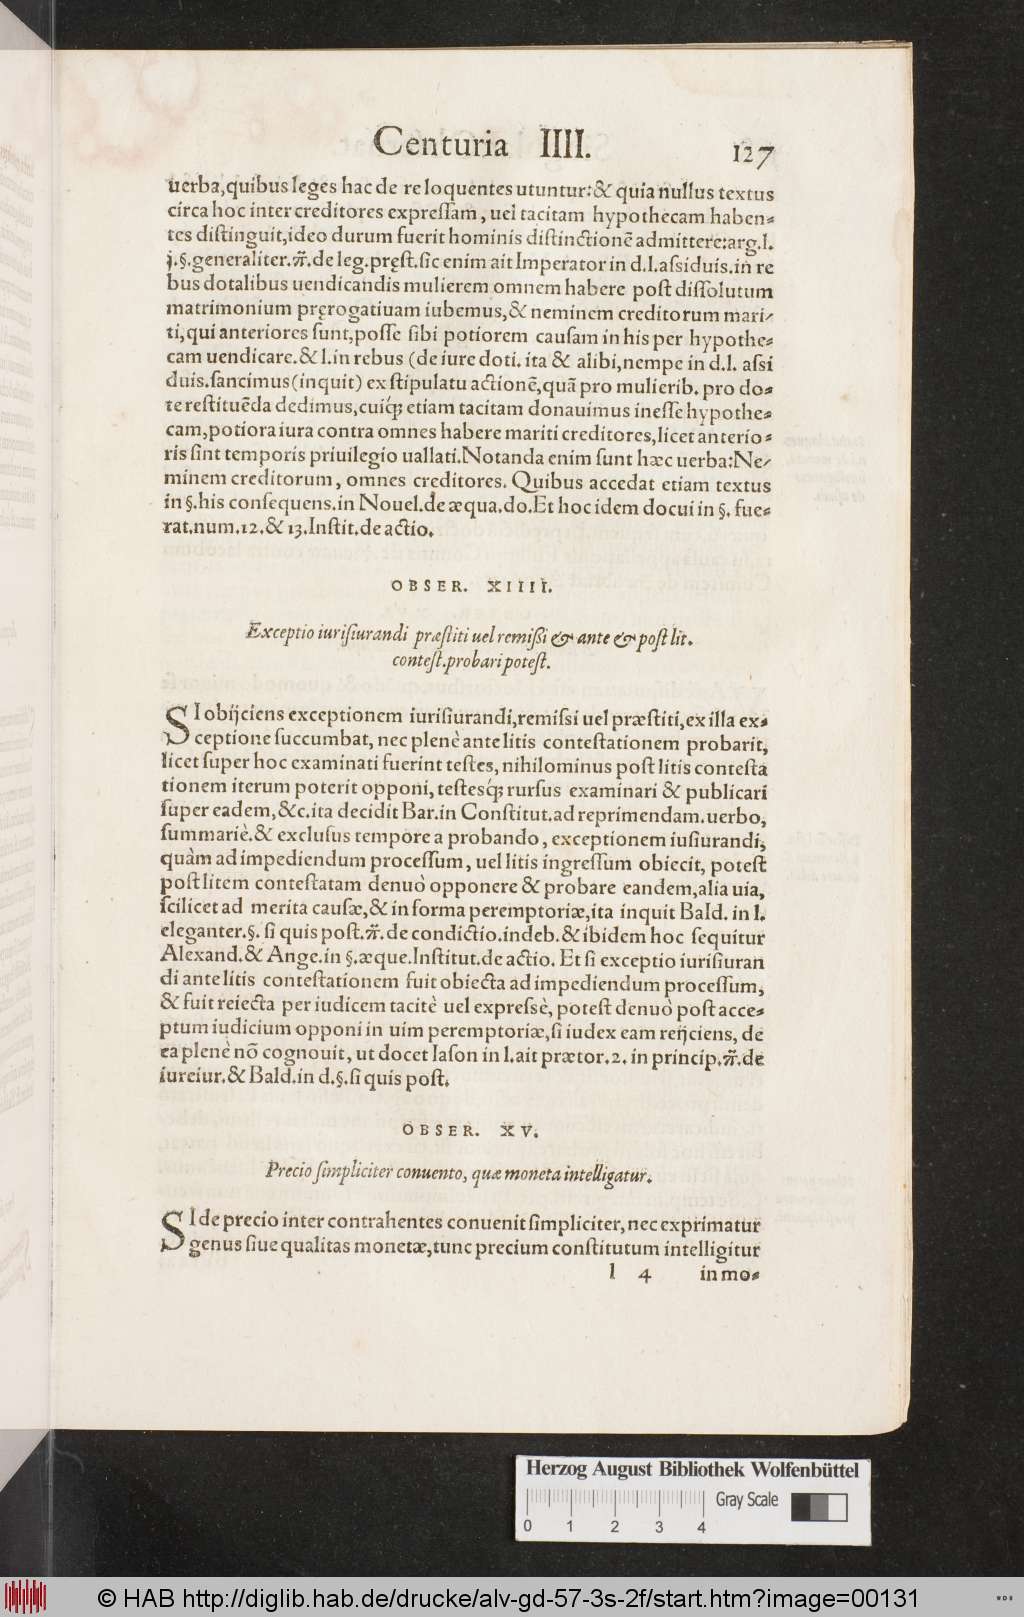 Centuria IIII. 127
uerba,quibus leges hac de re loquentes utuntur:& quia nullus textus
circa hoc inter creditores expressam, uel tacitam hypothecam haben-
tes distinguit,ideo durum fuerit hominis distinctionē admittere:arg.l.
j.§.generaliter.ff.de leg.pręst.sic enim ait Imperator in d.l.assiduis.in re
bus dotalibus uendicandis mulierem omnem habere post dissolutum
matrimonium pręrogatiuam iubemus,& neminem creditorum mari-
ti,qui anteriores sunt,posse sibi potiorem causam in his per hypothe-
cam uendicare.& l.in rebus (de iure doti. ita & alibi,nempe in d.l. assi
duis.sancimus(inquit) ex stipulatu actionē,quā pro mulierib. pro do-
te restituēda dedimus,cuiq́; etiam tacitam donauimus inesse hypothe-
cam,potiora iura contra omnes habere mariti creditores,licet anterio-
ris sint temporis priuilegio uallati.Notanda enim sunt hæc uerba:Ne-
minem creditorum, omnes creditores. Quibus accedat etiam textus
in §.his consequens.in Nouel.de æqua.do.Et hoc idem docui in §. fue-
rat.num.12.& 13.Instit.de actio.
OBSER. XIIII.
Exceptio iurisiurandi præstiti uel remißi & ante & post lit.
contest.probari potest.
SI obijciens exceptionem iurisiurandi,remissi uel præstiti,ex illa ex-
ceptione succumbat, nec plenè ante litis contestationem probarit,
licet super hoc examinati fuerint testes, nihilominus post litis contesta
tionem iterum poterit opponi, testesq́; rursus examinari & publicari
super eadem,&c.ita decidit Bar.in Constitut.ad reprimendam.uerbo,
summariè.& exclusus tempore a probando, exceptionem iusiurandi,
quàm ad impediendum processum, uel litis ingressum obiecit, potest
post litem contestatam denuò opponere & probare eandem,alia uia,
scilicet ad merita causæ,& in forma peremptoriæ,ita inquit Bald. in l.
eleganter.§. si quis post.ff.de condictio.indeb.& ibidem hoc sequitur
Alexand.& Ange.in §.æque.Institut.de actio. Et si exceptio iurisiuran
di ante litis contestationem fuit obiecta ad impediendum processum,
& fuit reiecta per iudicem tacitè uel expressè, potest denuò post acce-
ptum iudicium opponi in uim peremptoriæ,si iudex eam reijciens, de
ea plenè nō cognouit, ut docet Iason in l.ait prætor.2. in princip.ff.de
iureiur.& Bald.in d.§.si quis post.
OBSER. XV.
Precio simpliciter conuento, quæ moneta intelligatur.
SI de precio inter contrahentes conuenit simpliciter, nec exprimatur
genus siue qualitas monetæ,tunc precium constitutum intelligitur
l 4 in mo-
Herzog August Bibliothek Wolfenbüttel
Gray Scale
0 1 2 3 4
© HAB http://diglib.hab.de/drucke/alv-gd-57-3s-2f/start.htm?image=00131